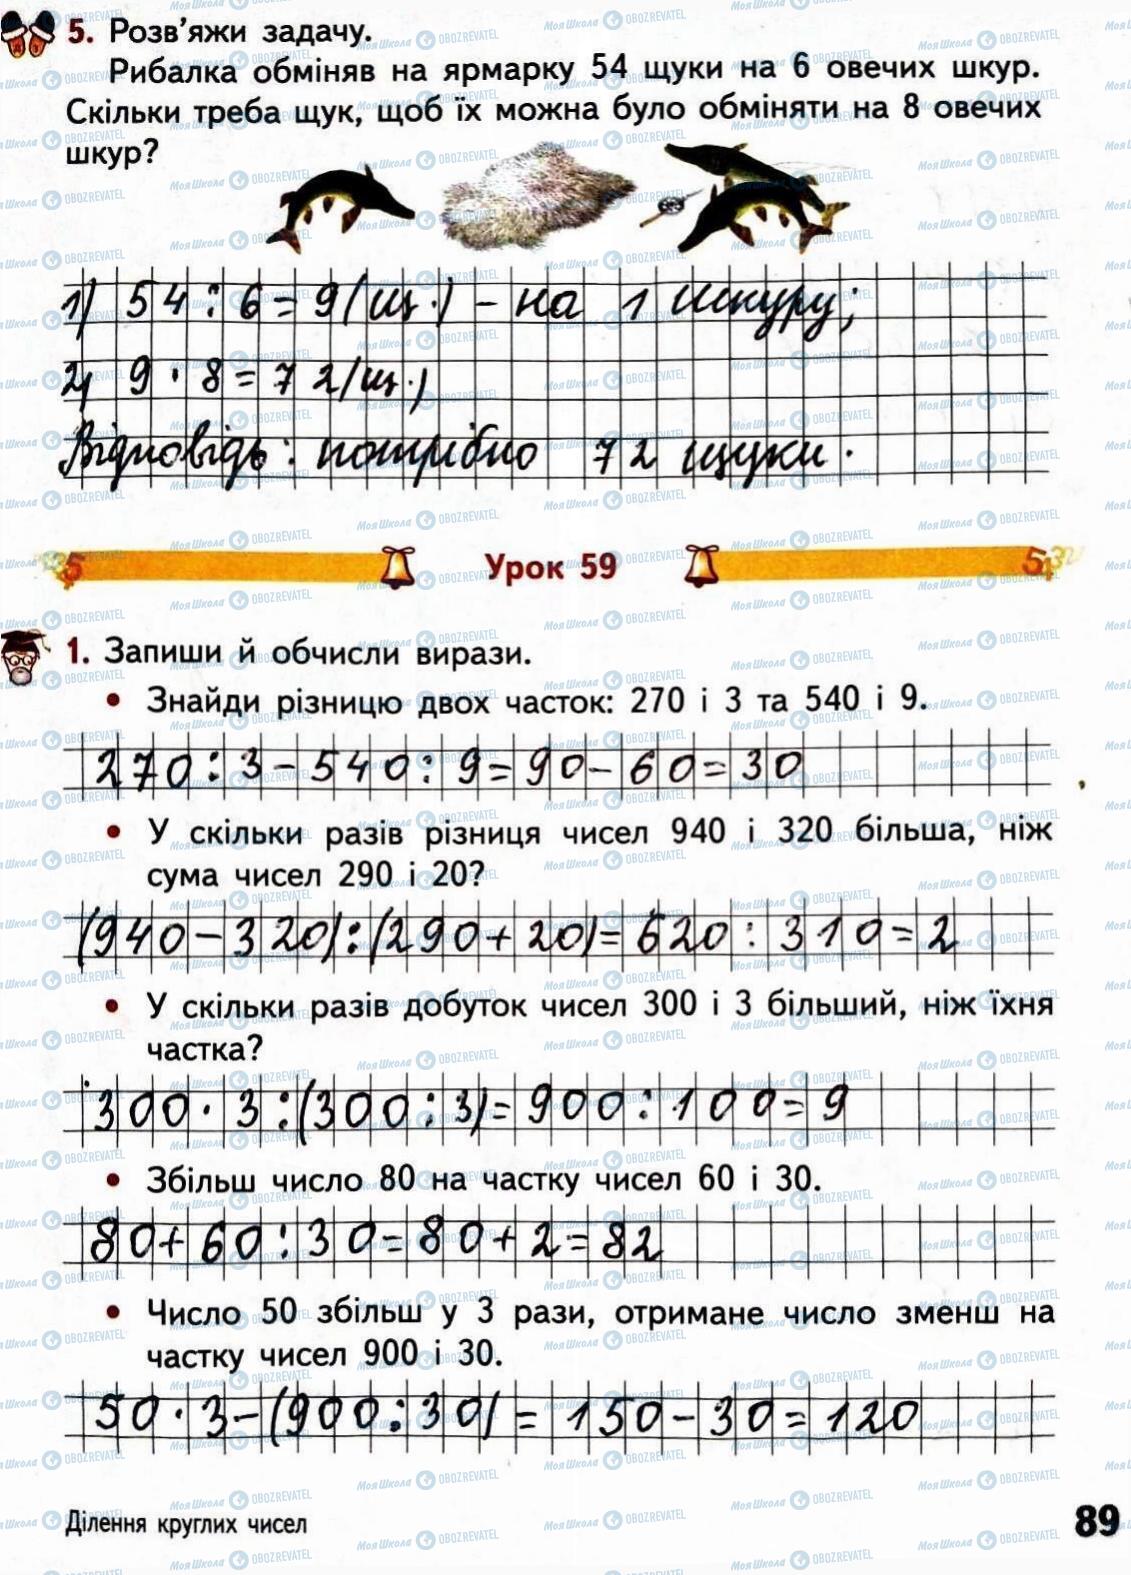 5. Розв'яжи задачу.
Рибалка обміняв на ярмарку 54 щуки на 6 овечих шкур.
Скільки треба щук, щоб їх можна було обміняти на 8 овечих
шкур?
1) 54 : 6 = 9 (щ.) – на 1 шкуру;
2) 9 · 8 = 72 (щ.)
Відповідь: потрібно 72 щуки.
Урок 59
1. Запиши й обчисли вирази.
• Знайди різницю двох часток: 270 і 3 та 540 і 9.
270 : 3 – 540 : 9 = 90 – 60 = 30
• У скільки разів різниця чисел 940 і 320 більша, ніж
сума чисел 290 і 20?
(940 – 320) : (290 + 20) = 620 : 310 = 2
• У скільки разів добуток чисел 300 і 3 більший, ніж їхня
частка?
300 · 3 : (300 : 3) = 900 : 100 = 9
• Збільш число 80 на частку чисел 60 і 30.
80 + 60 : 30 = 80 + 2 = 82
• Число 50 збільш у 3 рази, отримане число зменш на
частку чисел 900 і 30.
50 · 3 – (900 : 30) = 150 – 30 = 120
Ділення круглих чисел
89
МояШкола OBOZREVATEL